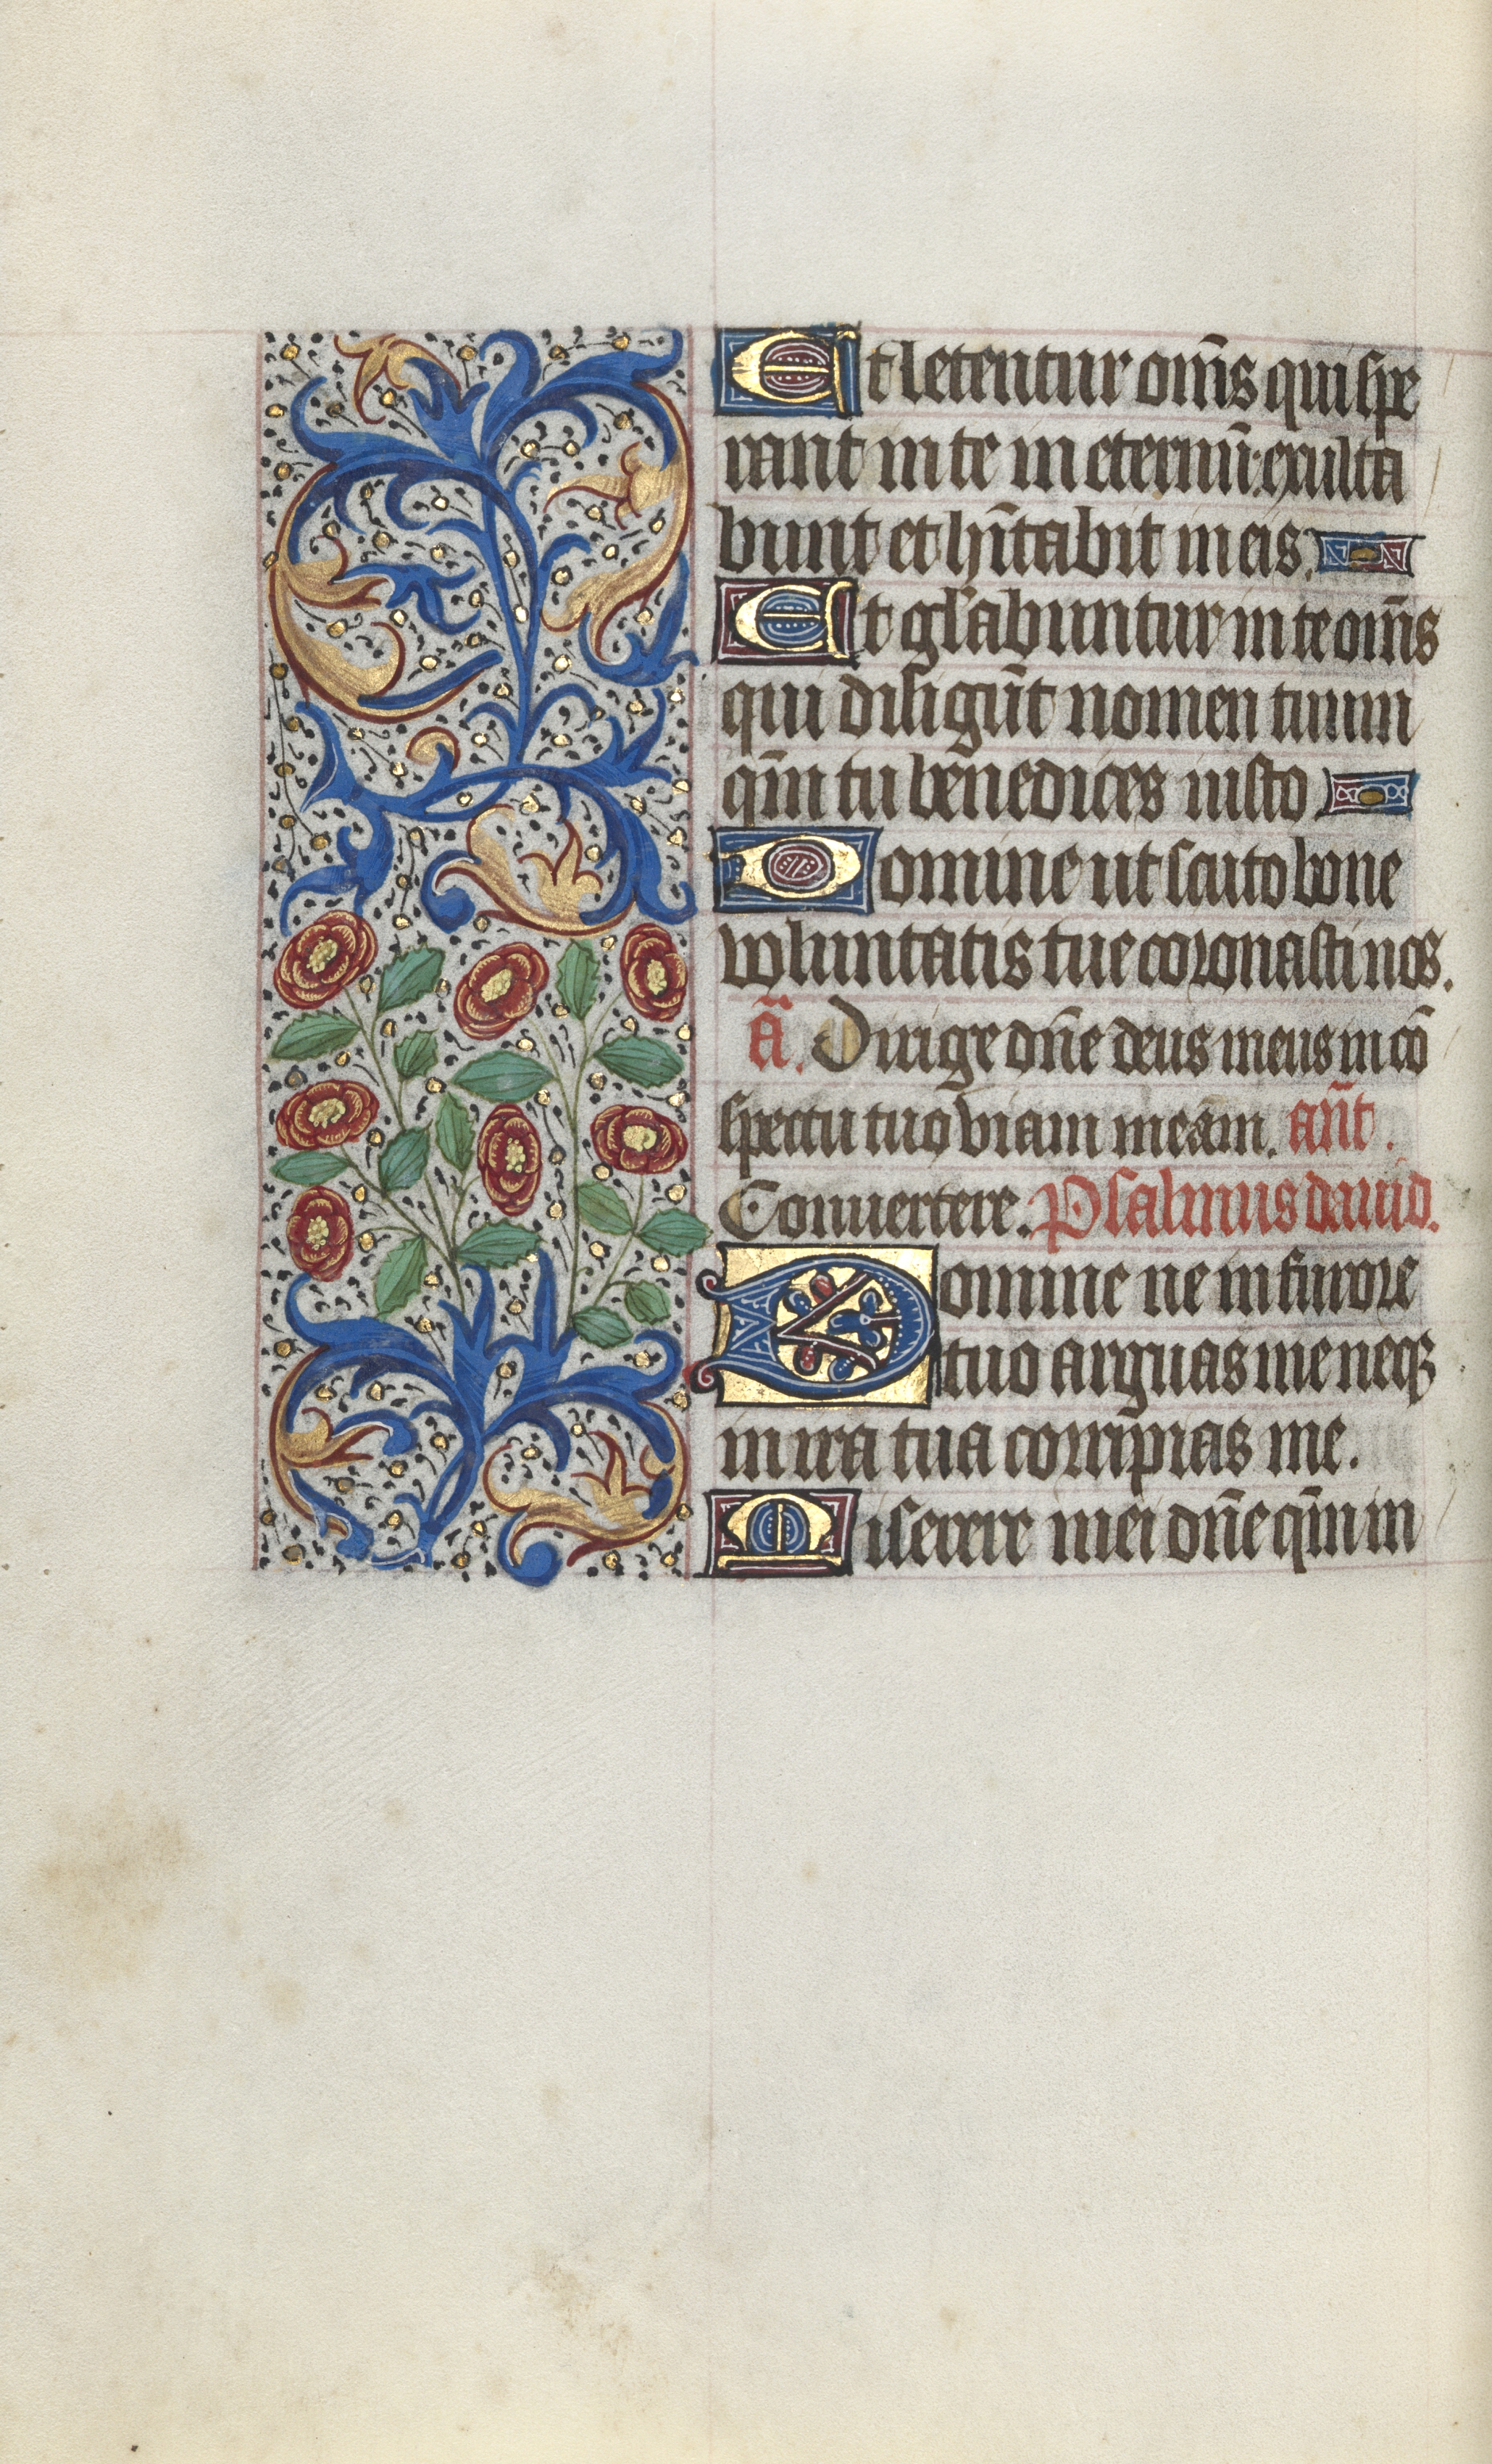 Et letentur om̅s qui spe
rant in te in eternu̅: exulta
bunt et hi̅tabit in eis.
Et gl'abuntur in te om̅s
qui diligu̅t nomen tuum
qm̅ tu benedices iusto
Domine ut scuto bone
voluntatis tue coronasti nos.
a̅. Dirige dn̅e deus meus in co̅
spectu tuo viam meam. an̅t.
Conuertere. Psalmus dauid.
Domine ne in furore
tuo arguas me neqꝫ
in ira tua corripias me.
Miserere mei dn̅e qm̅ in